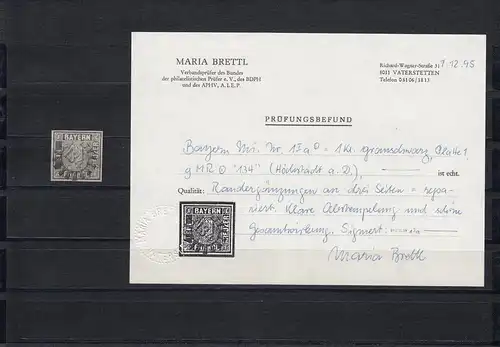 MARIA BRETTL
Verbandsprüfer des Bundes
der philatelistischen Prüfer e. V., des BDPH
und des APHV, A.I.E.P.
Richard-Wagner-Straße 31
8011 VATERSTETTEN
Telefon 08106/1815
12.95
PRÜFUNGSBEFUND
Bayern Mi. Nr. 1 = 1 Kr. grauschwarz, Platte 1
gMR "134" (Höchstädt a. D.), ist echt.
Qualität: Randergänzungen an drei Seiten = repa-
riert. Klare Abstempelung und schöne
Gesamtwirkung. Signiert:
Maria Brettl
BAYERN
BAYERN